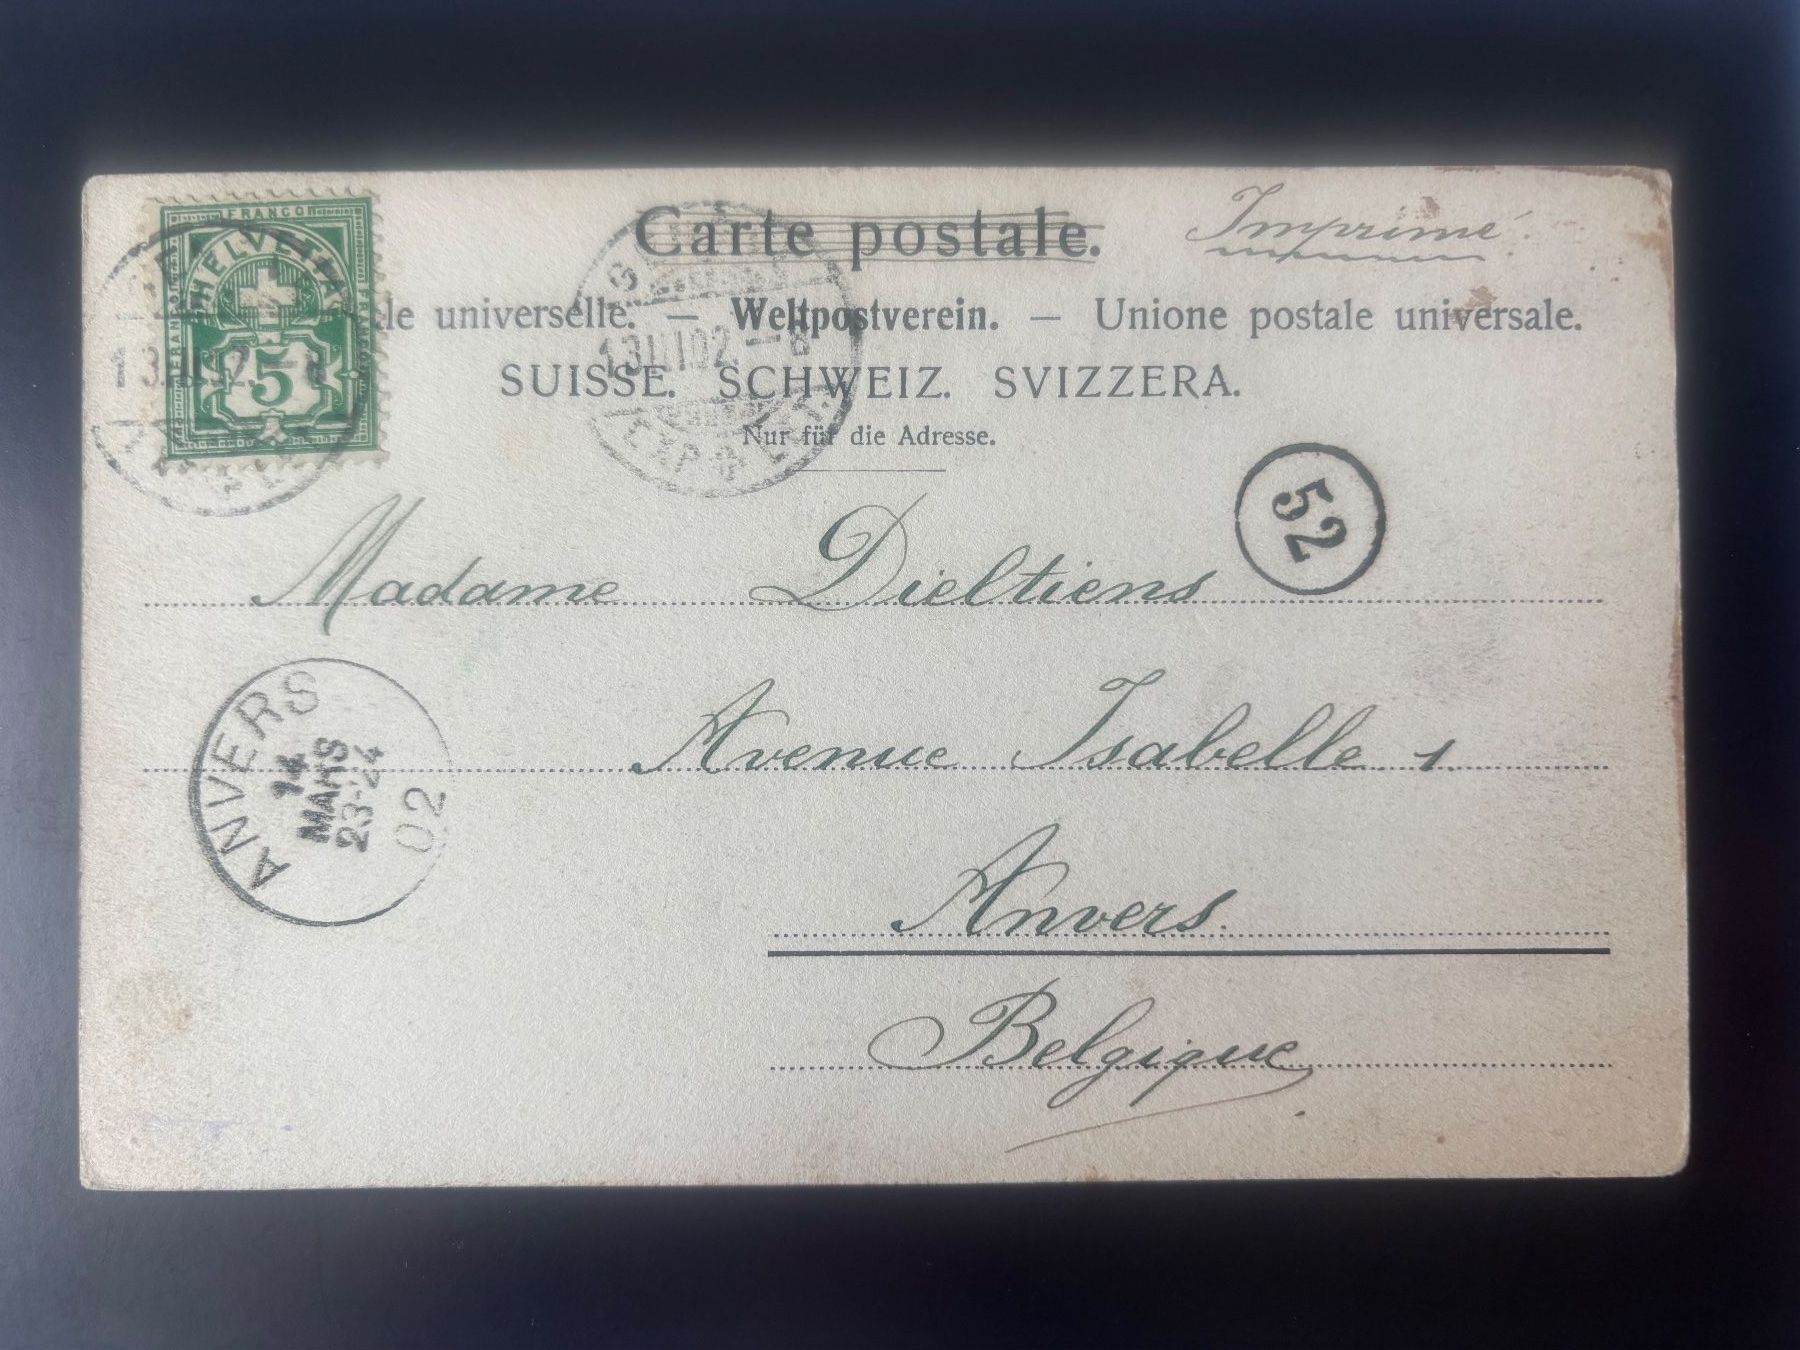 FRANCO
HELVETIA
FRANCO
FRANCO
5
Carte postale.
Imprimé.
le universelle. — Weltpostverein. — Unione postale universale.
SUISSE. SCHWEIZ. SVIZZERA.
Nur für die Adresse.
13.III.02.–8
EXP. LET.
52
Madame Dieltiens
Avenue Isabelle 1.
Anvers.
Belgique
ANVERS
14
MARS
23-24
02